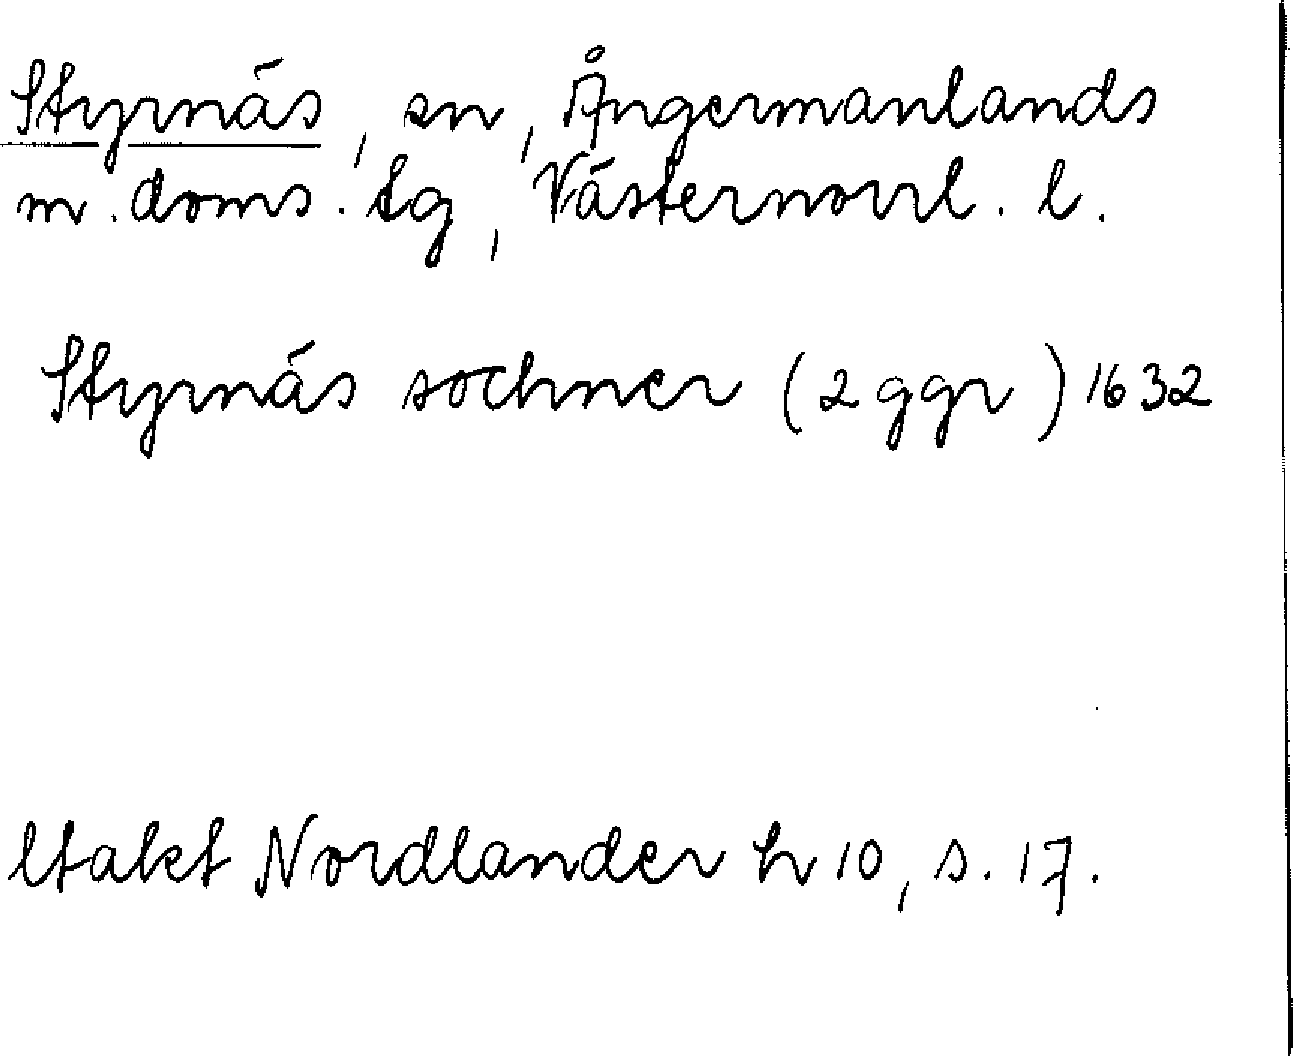 Styrnäs, sn, Ångermanlands
m. doms. tg, Västernorrl. l.
Styrnäs sochner (2 ggr) 1632
Utakt Nordlander h 10, s. 17.